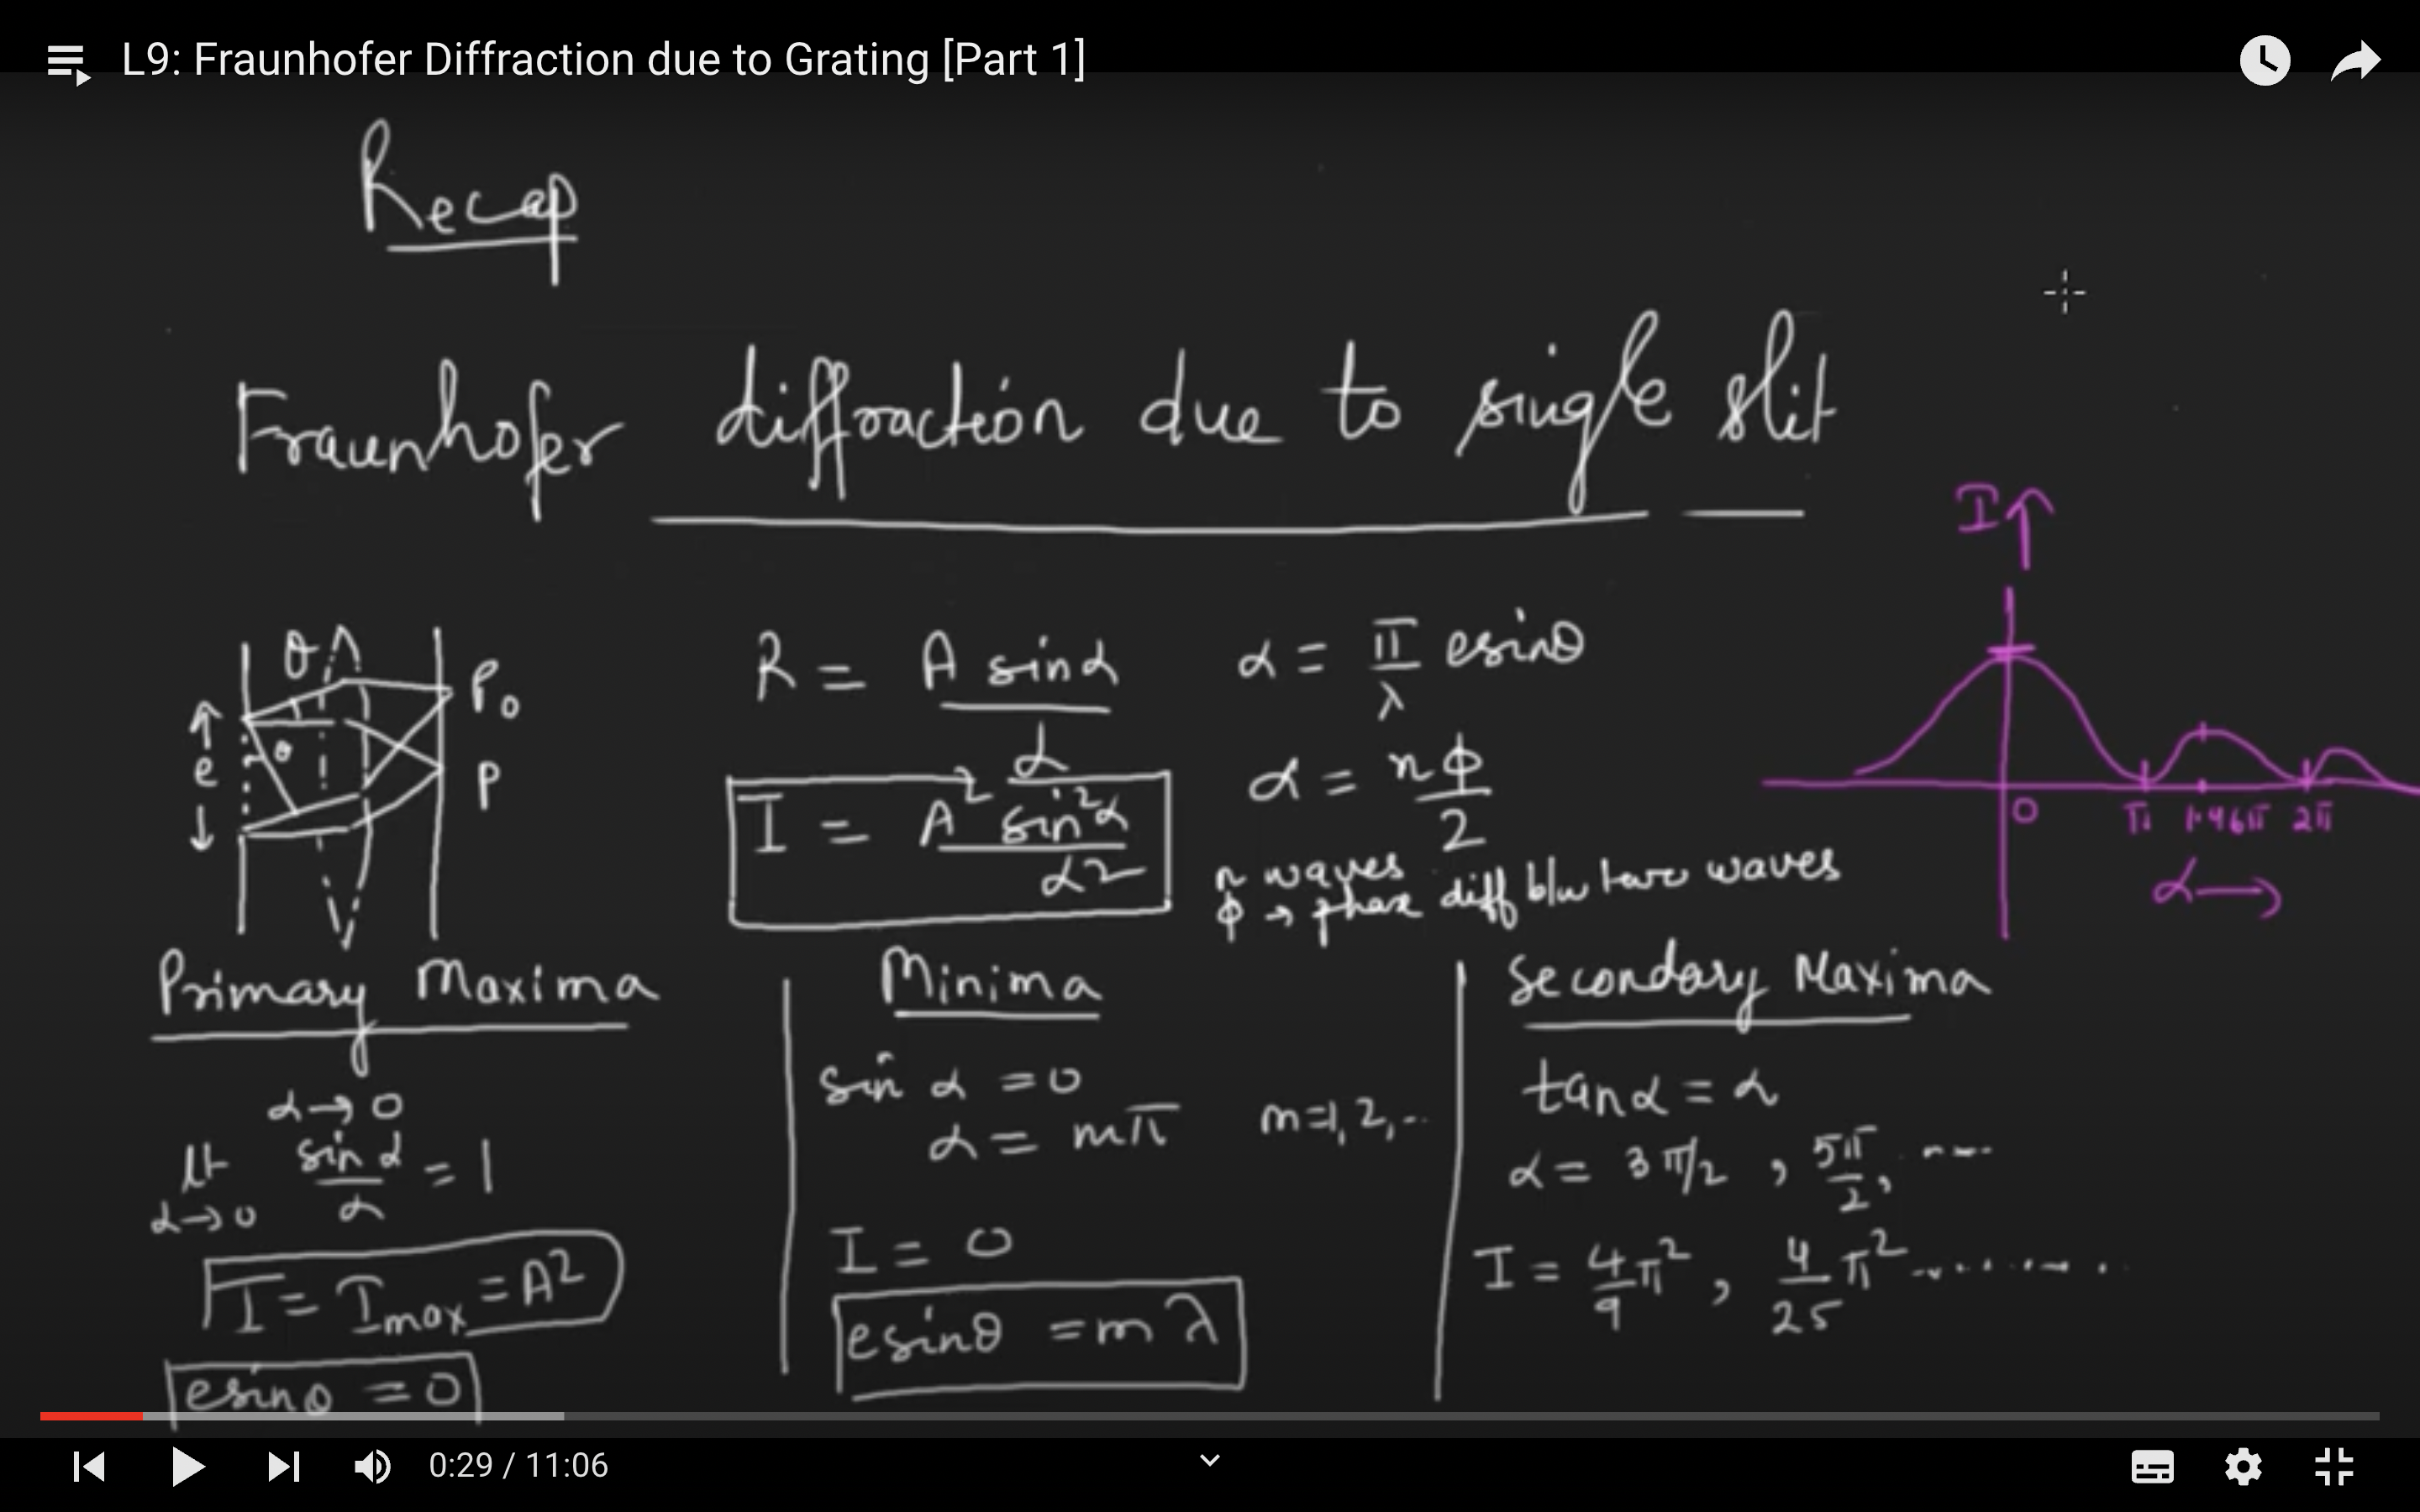 L9: Fraunhofer Diffraction due to Grating [Part 1]
Recap
Fraunhofer diffraction due to single slit
I ↑
θ
P₀
R = A sinα / α
α = π/λ esinθ
e
θ
P
I = A² sin²α / α²
α = nϕ/2
0 π 1.46π 2π
α →
n waves
ϕ → phase diff b/w two waves
Primary Maxima
α → 0
lt α→0 sin α / α = 1
I = Imax = A²
esinθ = 0
Minima
sin α = 0
α = mπ m=1, 2, ..
I = 0
esinθ = mλ
Secondary Maxima
tanα = α
α = 3π/2 , 5π/2, ----
I = 4/9 π² , 4/25 π² ........
0:29 / 11:06